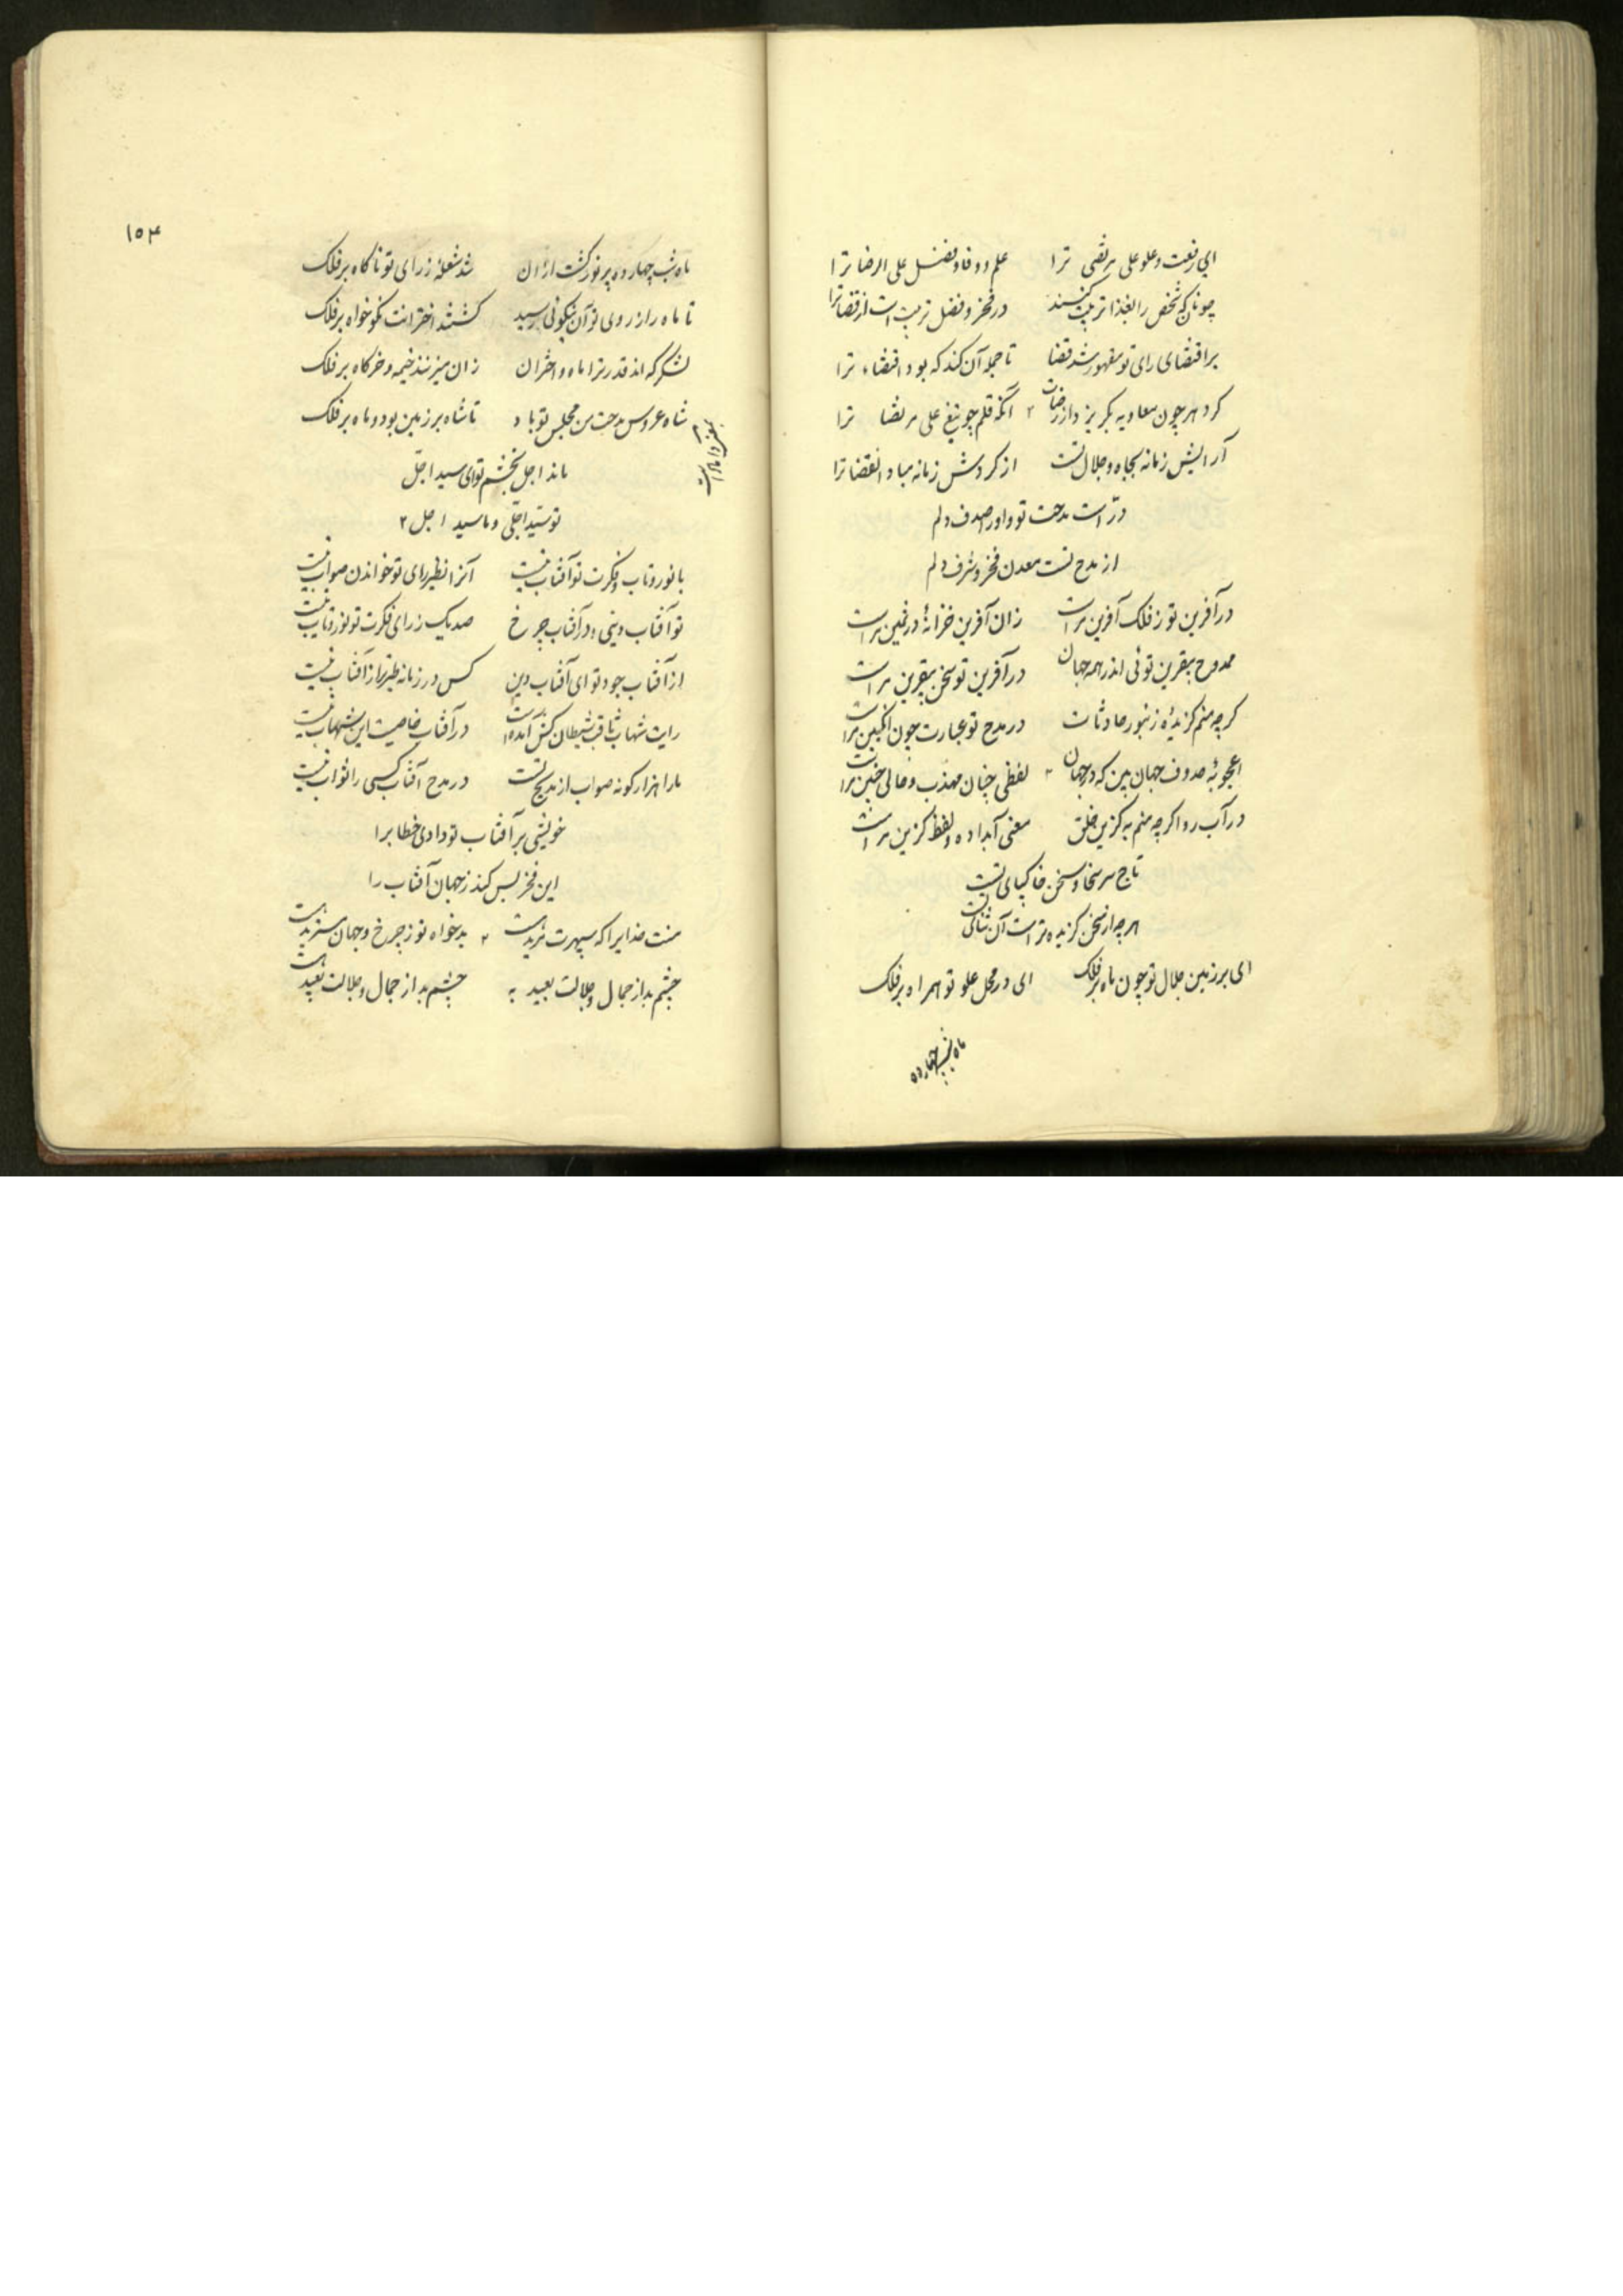 ای رفعت و علو علی مرتضی ترا علم و وفا و فضل علی الرضا ترا
چونانکه شخص را بغذا تربیت کنند در فخر و فضل تربیت است از قضا ترا
بر اقتضای رای تو مقهور شد قضا تا جمله آن کند که بود اقتضاء ترا
کرد هر چون معاویه بگریزد از آنکه قلم چو تیغ علی مرتضا ترا
آرایش زمانه بجاه و جلال تست از گردش زمانه مباد انقضا ترا
درّ است مدحت تو و او را صدف دلم
از مدح تست معدن فخر و شرف دلم
در آفرین تو ز فلک آفرین مراست زان آفرین خزانهٔ در ثمین مراست
ممدوح بیقرین توئی اندر همه جهان در آفرین تو سخن بیقرین مراست
گرچه منم گزیدهٔ زنبور حادثات در مدح تو عبارت چون انگبین مراست
اعجوبهٔ صروف جهان بین که در جهان لفظی چنان مهذب و حالی چنین مراست
در آب رو اگرچه منم به گزین خلق معنی آبداده و لفظ گزین مراست
تاج سر سخا و سخن خاکپای تست
هر چه از سخن گزیده تر است آن ثنای تست
ای بر زمین جلال تو چون ماه بر فلک ای در محل علو تو همراه بر فلک
ماه شب چهارده
۱۵۴
ماه شب چهارده پر نور گشت از آن شد شعلهٔ ز رای تو ناگاه بر فلک
تا ماه را ز روی تو آن نیکوئی رسید گشتند اخترانت نکو خواه بر فلک
لشگرکه اند قدر ترا ماه و اختران زان میزنند خیمه و خرگاه بر فلک
شاه عروس مدحت من مجلس تو باد تا شاه بر زمین بود و ماه بر فلک
ماند اجل بخشم تو ای سید اجلّ
تو سیّد اجلّی و ما سید اجل
با نور و تاب و فکرت تو آفتاب نیست آنرا نظیر رای تو خواندن صواب نیست
تو آفتاب دینی و در آفتاب چرخ صد یک ز رای فکرت تو نور و تاب نیست
از آفتاب جود تو ای آفتاب دین کس در زمانه طیره تر از آفتاب نیست
رایت شهاب ثاقب شیطان کش آمده است در آفتاب خاصیت این شهاب نیست
ما را هزار گونه صواب از مدیح تست در مدح آفتاب کسی را ثواب نیست
خویشی بر آفتاب تو دادی خطابرا
این فخر بس کند ز جهان آفتاب را
منت خدایرا که سپهرت مرید است بدخواه تو ز چرخ و جهان
چشم بد از جمال و جلالت بعید به چشم بد از جمال و جلالت بعید